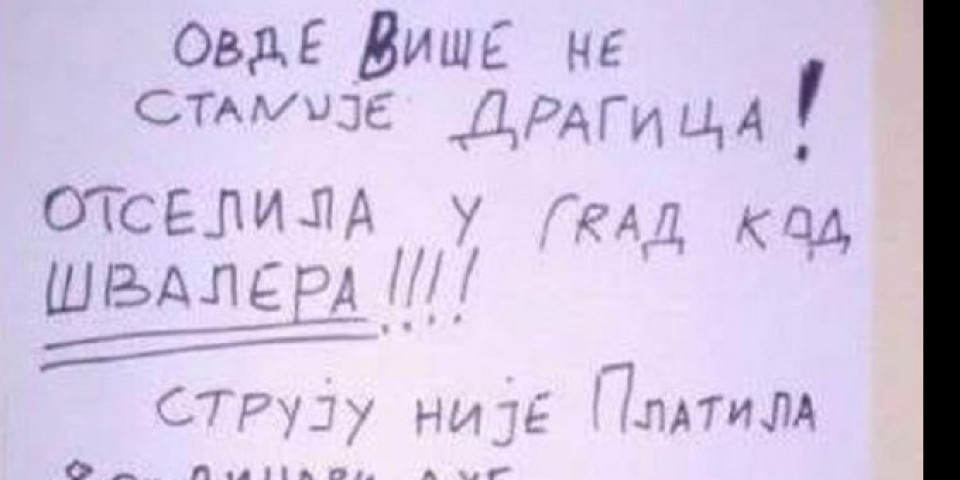 ОВДЕ ВИШЕ НЕ
СТАNУЈЕ ДРАГИЦА!
ОТСЕЛИЛА У ГRАД КОД
ШВАЛЕРА!!!!
СТРУЈУ НИЈЕ ПЛАТИЛА